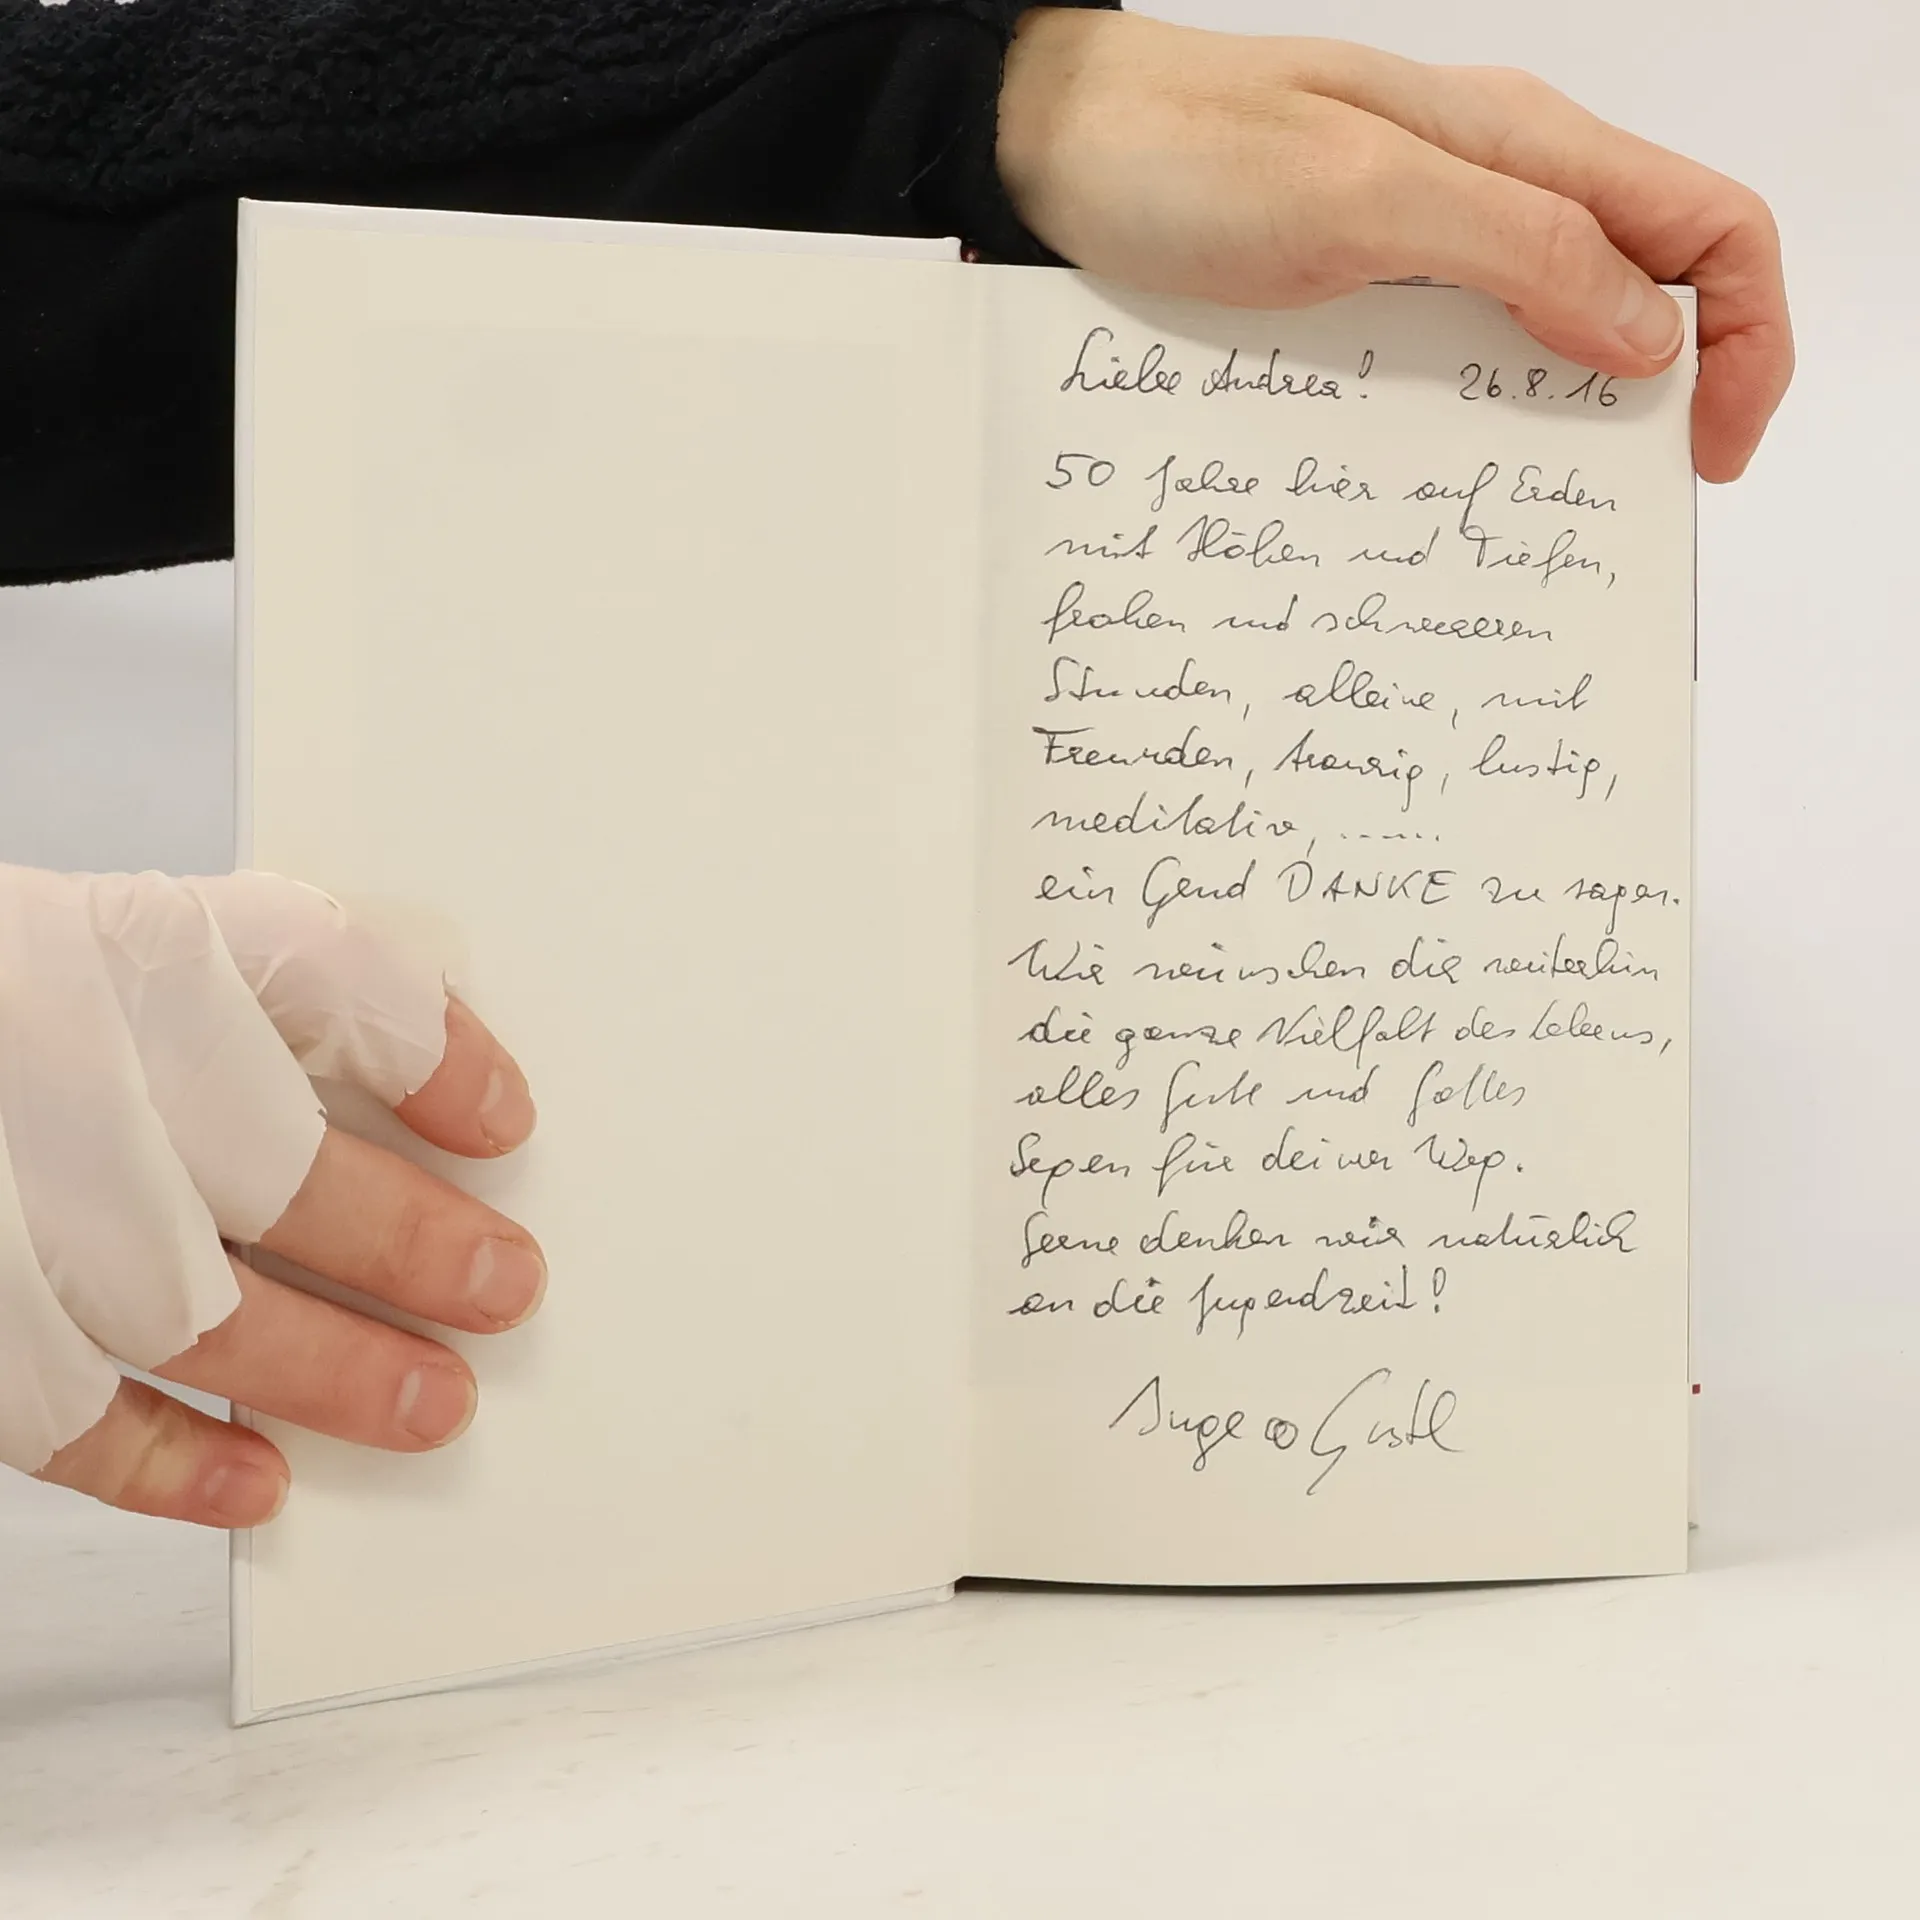 Liebe Andrea! 26.8.16
50 Jahre hier auf Erden
mit Höhen und Tiefen,
frohen und schweren
Stunden, alleine, mit
Freunden, traurig, lustig,
meditativ, ......
ein Grund DANKE zu sagen.
Wir wünschen dir weiterhin
die ganze Vielfalt des Lebens,
alles Gute und Gottes
Segen für deinen Weg.
Gerne denken wir natürlich
an die Jugendzeit!
Inge & Gustl